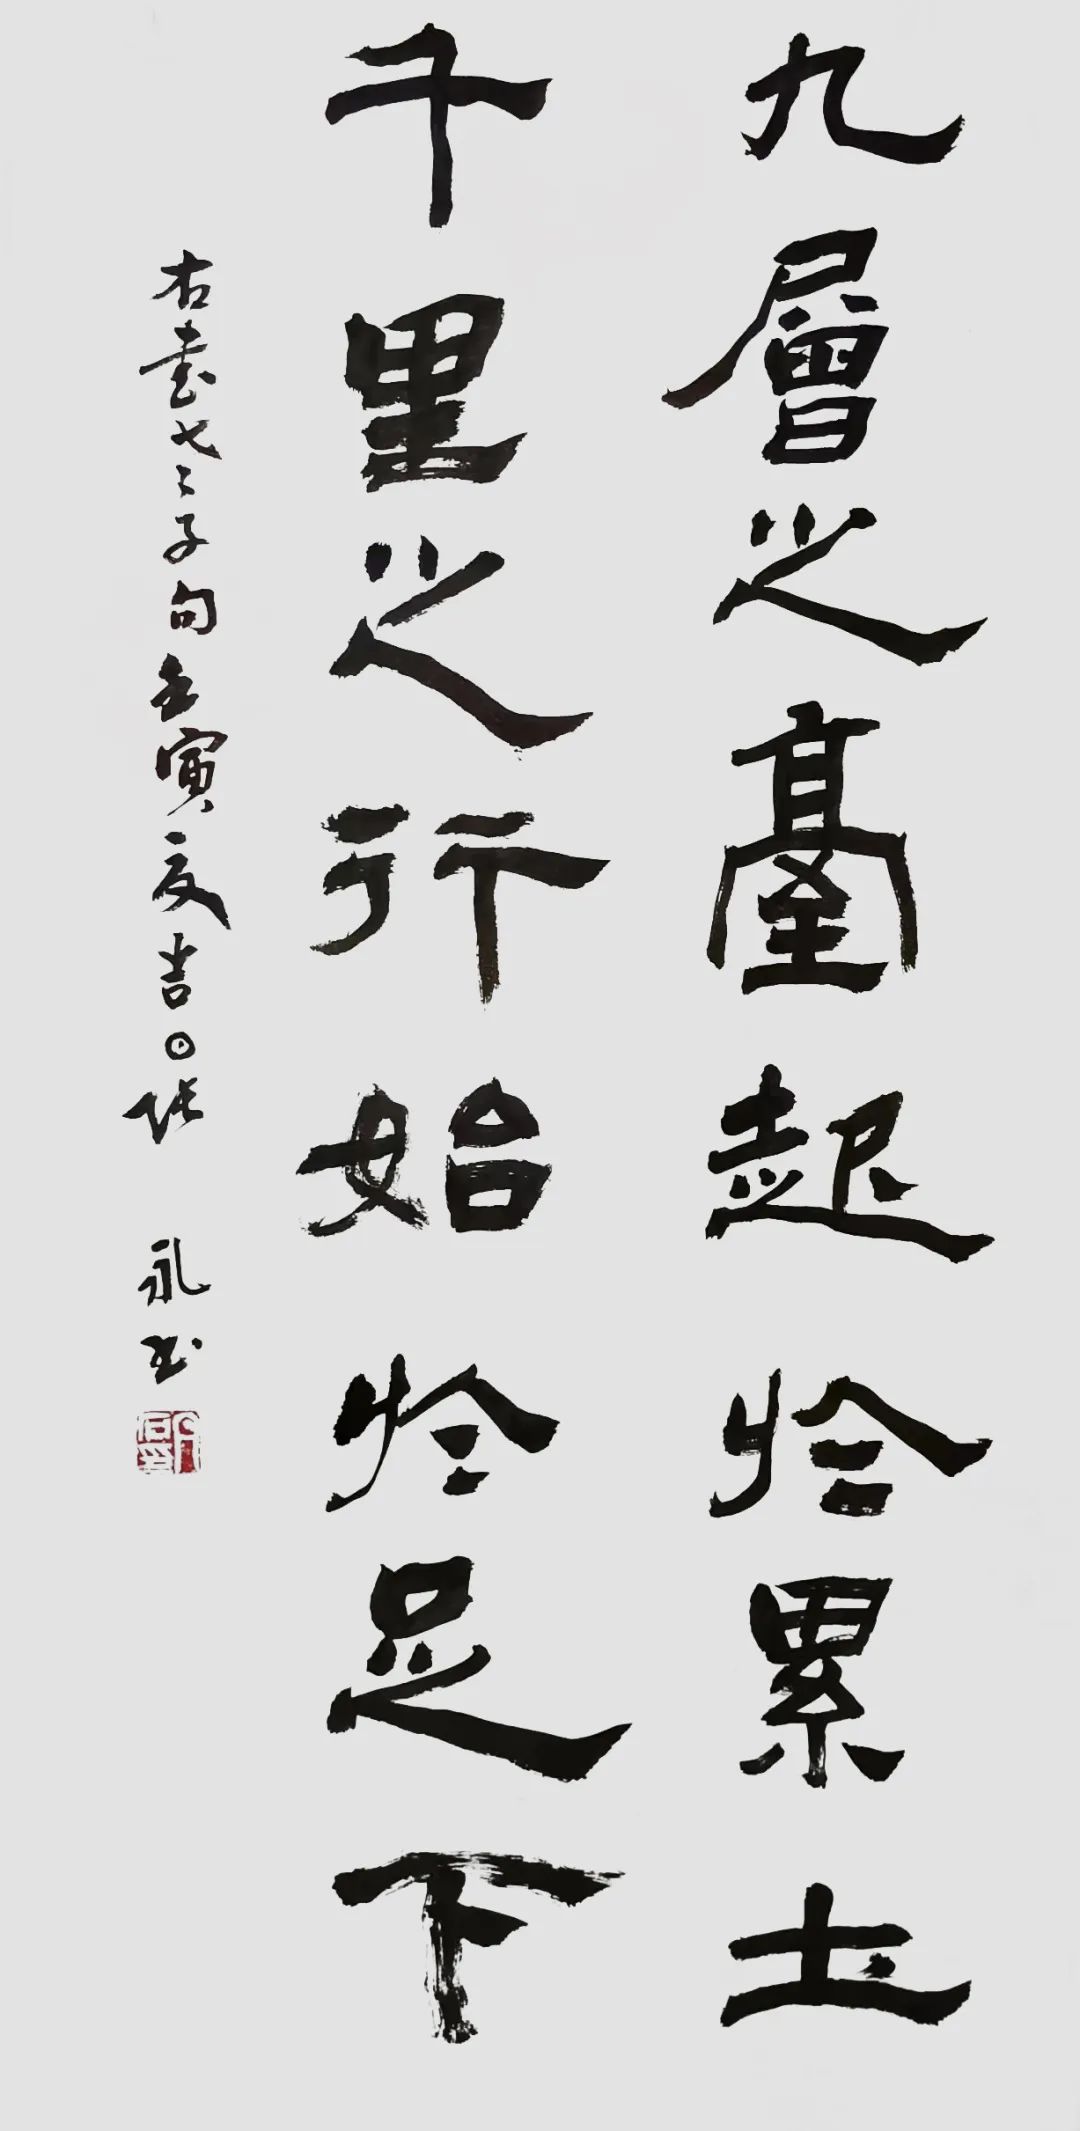 九層之臺起於累土
千里之行始於足下
右書老子句壬寅夏吉日张永书